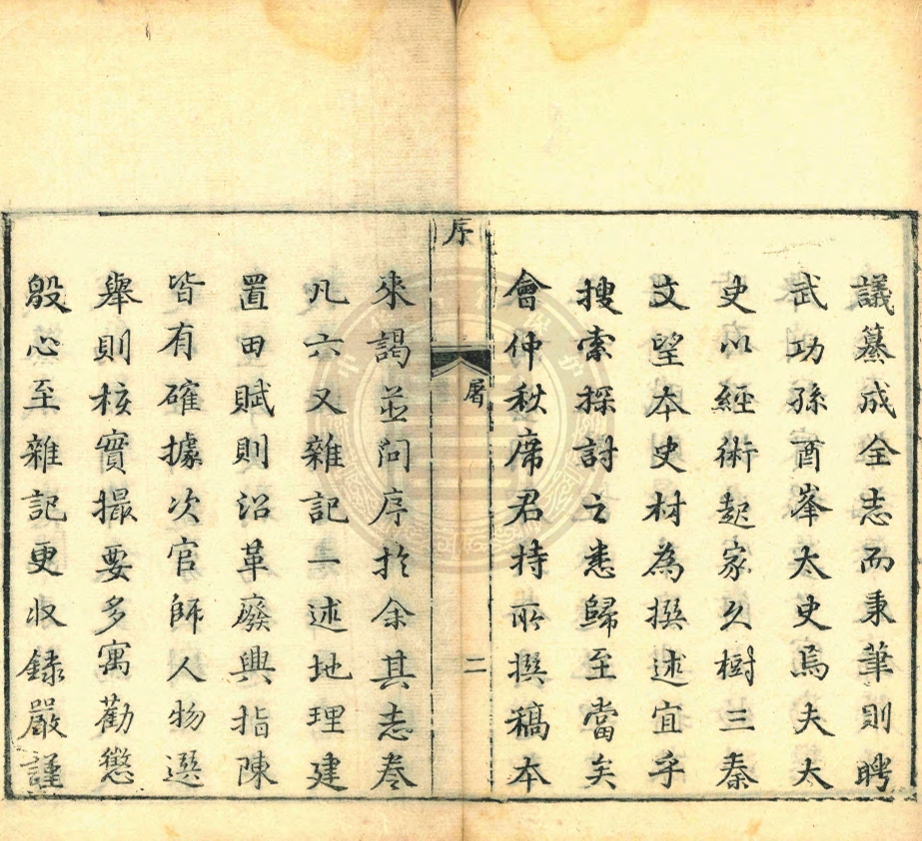 議纂成全志而秉筆則聘
武功孫酉峯太史焉夫太
史以經術起家久樹三秦
文望本史材為撰述宜乎
搜索探討之悉歸至當矣
會仲秋席君持所撰稿本
序
屠
二
來謁並問序於余其志卷
凡六又雜記一述地理建
置田賦則沿革廢興指陳
皆有確據次官師人物選
舉則核實撮要多寓勸懲
殷心至雜記更收録嚴謹